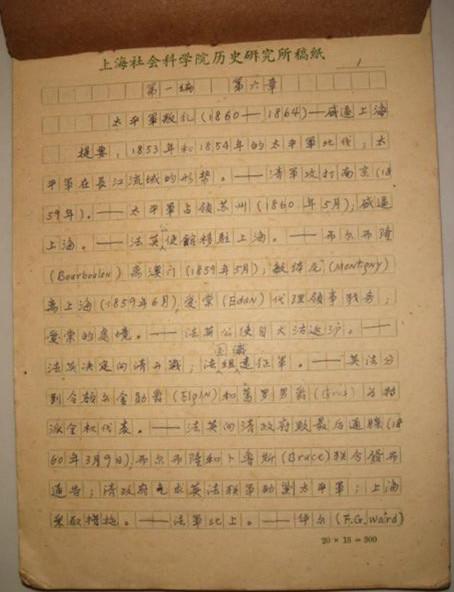 上海社会科学院历史研究所稿纸
1
第一编 第六章
太平军败北(1860—1864)—威逼上海
提要:1853年和1854年的太平军北伐;太
平军在長江流域的形势。——清军攻打南京(18
59年)。——太平军占领苏州(1860年5月),威逼
上海。——法英使館移駐上海。——布尔布隆
(Bourboulon)离澳门(1859年5月);敏体尼(Montigny)
离上海(1859年6月),爱棠(Edan)代理领事职务;
爱棠的处境。——法英公使自大沽返沪。——
法英决定向清开战;法国组遣征军。——英法分
别令额尔金勋爵(Elgin)和葛罗男爵(Gros)为特
派全权代表。——法英向清政府致最后通牒(18
60年3月9日),布尔布隆和卜鲁斯(Bruce)联合發布
通告;清政府乞求英法联军助剿太平军;上海
采取措施。——法军北上。——华尔(F.G.Ward)
20×15=300